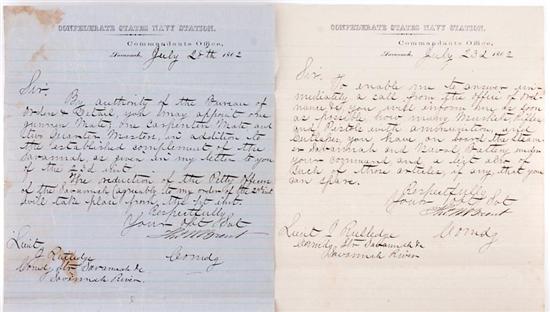 CONFEDERATE STATES NAVY STATION,
Commandants Office,
Savannah, July 28th 1862
Sir,
By authority of the Bureau of
Orders & Detail, you may appoint one
Gunners Mate, one Carpenters Mate and
two Quarter Masters, in addition to
the established complement of the
Savannah, as given in my letter to you
of the 23d Inst.
The reduction of the Petty Officers
of the Savannah (agreeably to my order of the
will take place from the 1st
Respectfully
Your Obt Svt
Comdg
Lieut J Rutledge
Comdg Str Savannah &c
Savannah River
CONFEDERATE STATES NAVY STATION,
Commandants Office,
Savannah, July 23d 1862
Sir,
To enable me to answer im-
mediately a call from the Office of Ord-
nance &c you will inform me as soon
as possible how many Muskets, Rifles
and Pistols with ammunition, and
Cutlasses, you have on board the Steam-
er Savannah and Naval Battery under
your command and a list also of
Such of those articles, if any, that you
can spare.
Respectfully
Your Obt Svt
Comdg
Lieut J Rutledge
Comdg Str Savannah &c
Savannah River